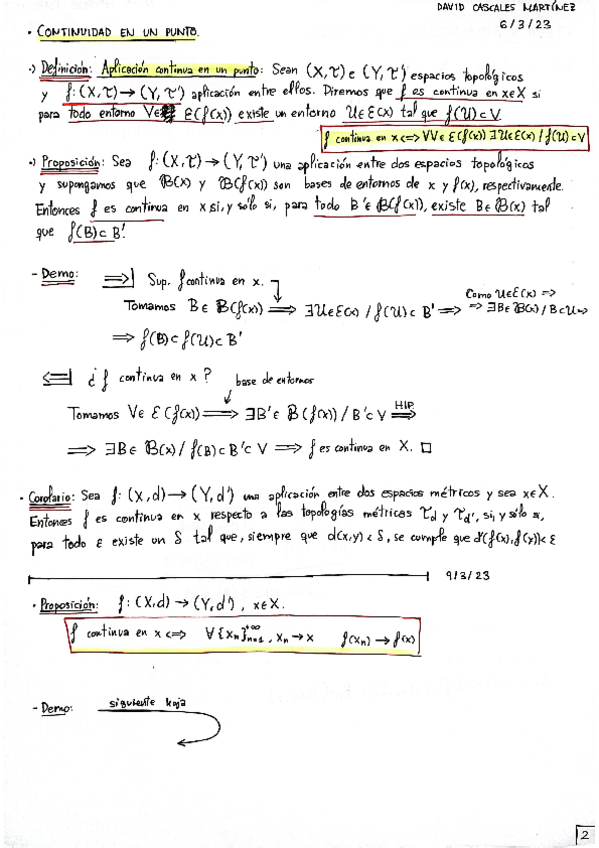 DAVID CASCALES MARTÍNEZ
6/3/23
• CONTINUIDAD EN UN PUNTO.
·) Definición: Aplicación continua en un punto: Sean (X,τ) e (Y,τ') espacios topológicos
y f:(X,τ)→(Y,τ') aplicación entre ellos. Diremos que f es continua en x∈X si
para todo entorno V∈ Ɛ(f(x)) existe un entorno U∈Ɛ(x) tal que f(U)⊂V.
f continua en x⟺∀V∈Ɛ(f(x)) ∃U∈Ɛ(x)/f(U)⊂V
·) Proposición: Sea f:(X,τ)→(Y,τ') una aplicación entre dos espacios topológicos
y supongamos que B(x) y B(f(x)) son bases de entornos de x y f(x), respectivamente.
Entonces f es continua en x si, y sólo si, para todo B'∈B(f(x)), existe B∈B(x) tal
que f(B)⊂B'.
- Demo: ⟹| Sup. f continua en x.
Tomamos B∈B(f(x)) ⟹ ∃U∈Ɛ(x)/f(U)⊂B' ⟹
Como U∈Ɛ(x) ⟹
⟹ ∃B∈B(x)/B⊂U ⟹
⟹ f(B)⊂f(U)⊂B'
⟸| ¿f continua en x?
base de entornos
Tomamos V∈Ɛ(f(x)) ⟹ ∃B'∈B(f(x))/B'⊂V HIP. ⟹
⟹ ∃B∈B(x)/f(B)⊂B'⊂V ⟹ f es continua en X. □
• Corolario: Sea f:(X,d)→(Y,d') una aplicación entre dos espacios métricos y sea x∈X.
Entonces f es continua en x respecto a las topologías métricas τd y τd', si, y sólo si,
para todo ε existe un δ tal que, siempre que d(x,y)<δ, se cumple que d'(f(x),f(y))<ε
9/3/23
• Proposición: f:(X,d)→(Y,d'), x∈X.
f continua en x⟺ ∀{xn}n=1+∞, xn→x f(xn)→f(x)
- Demo: siguiente hoja
2